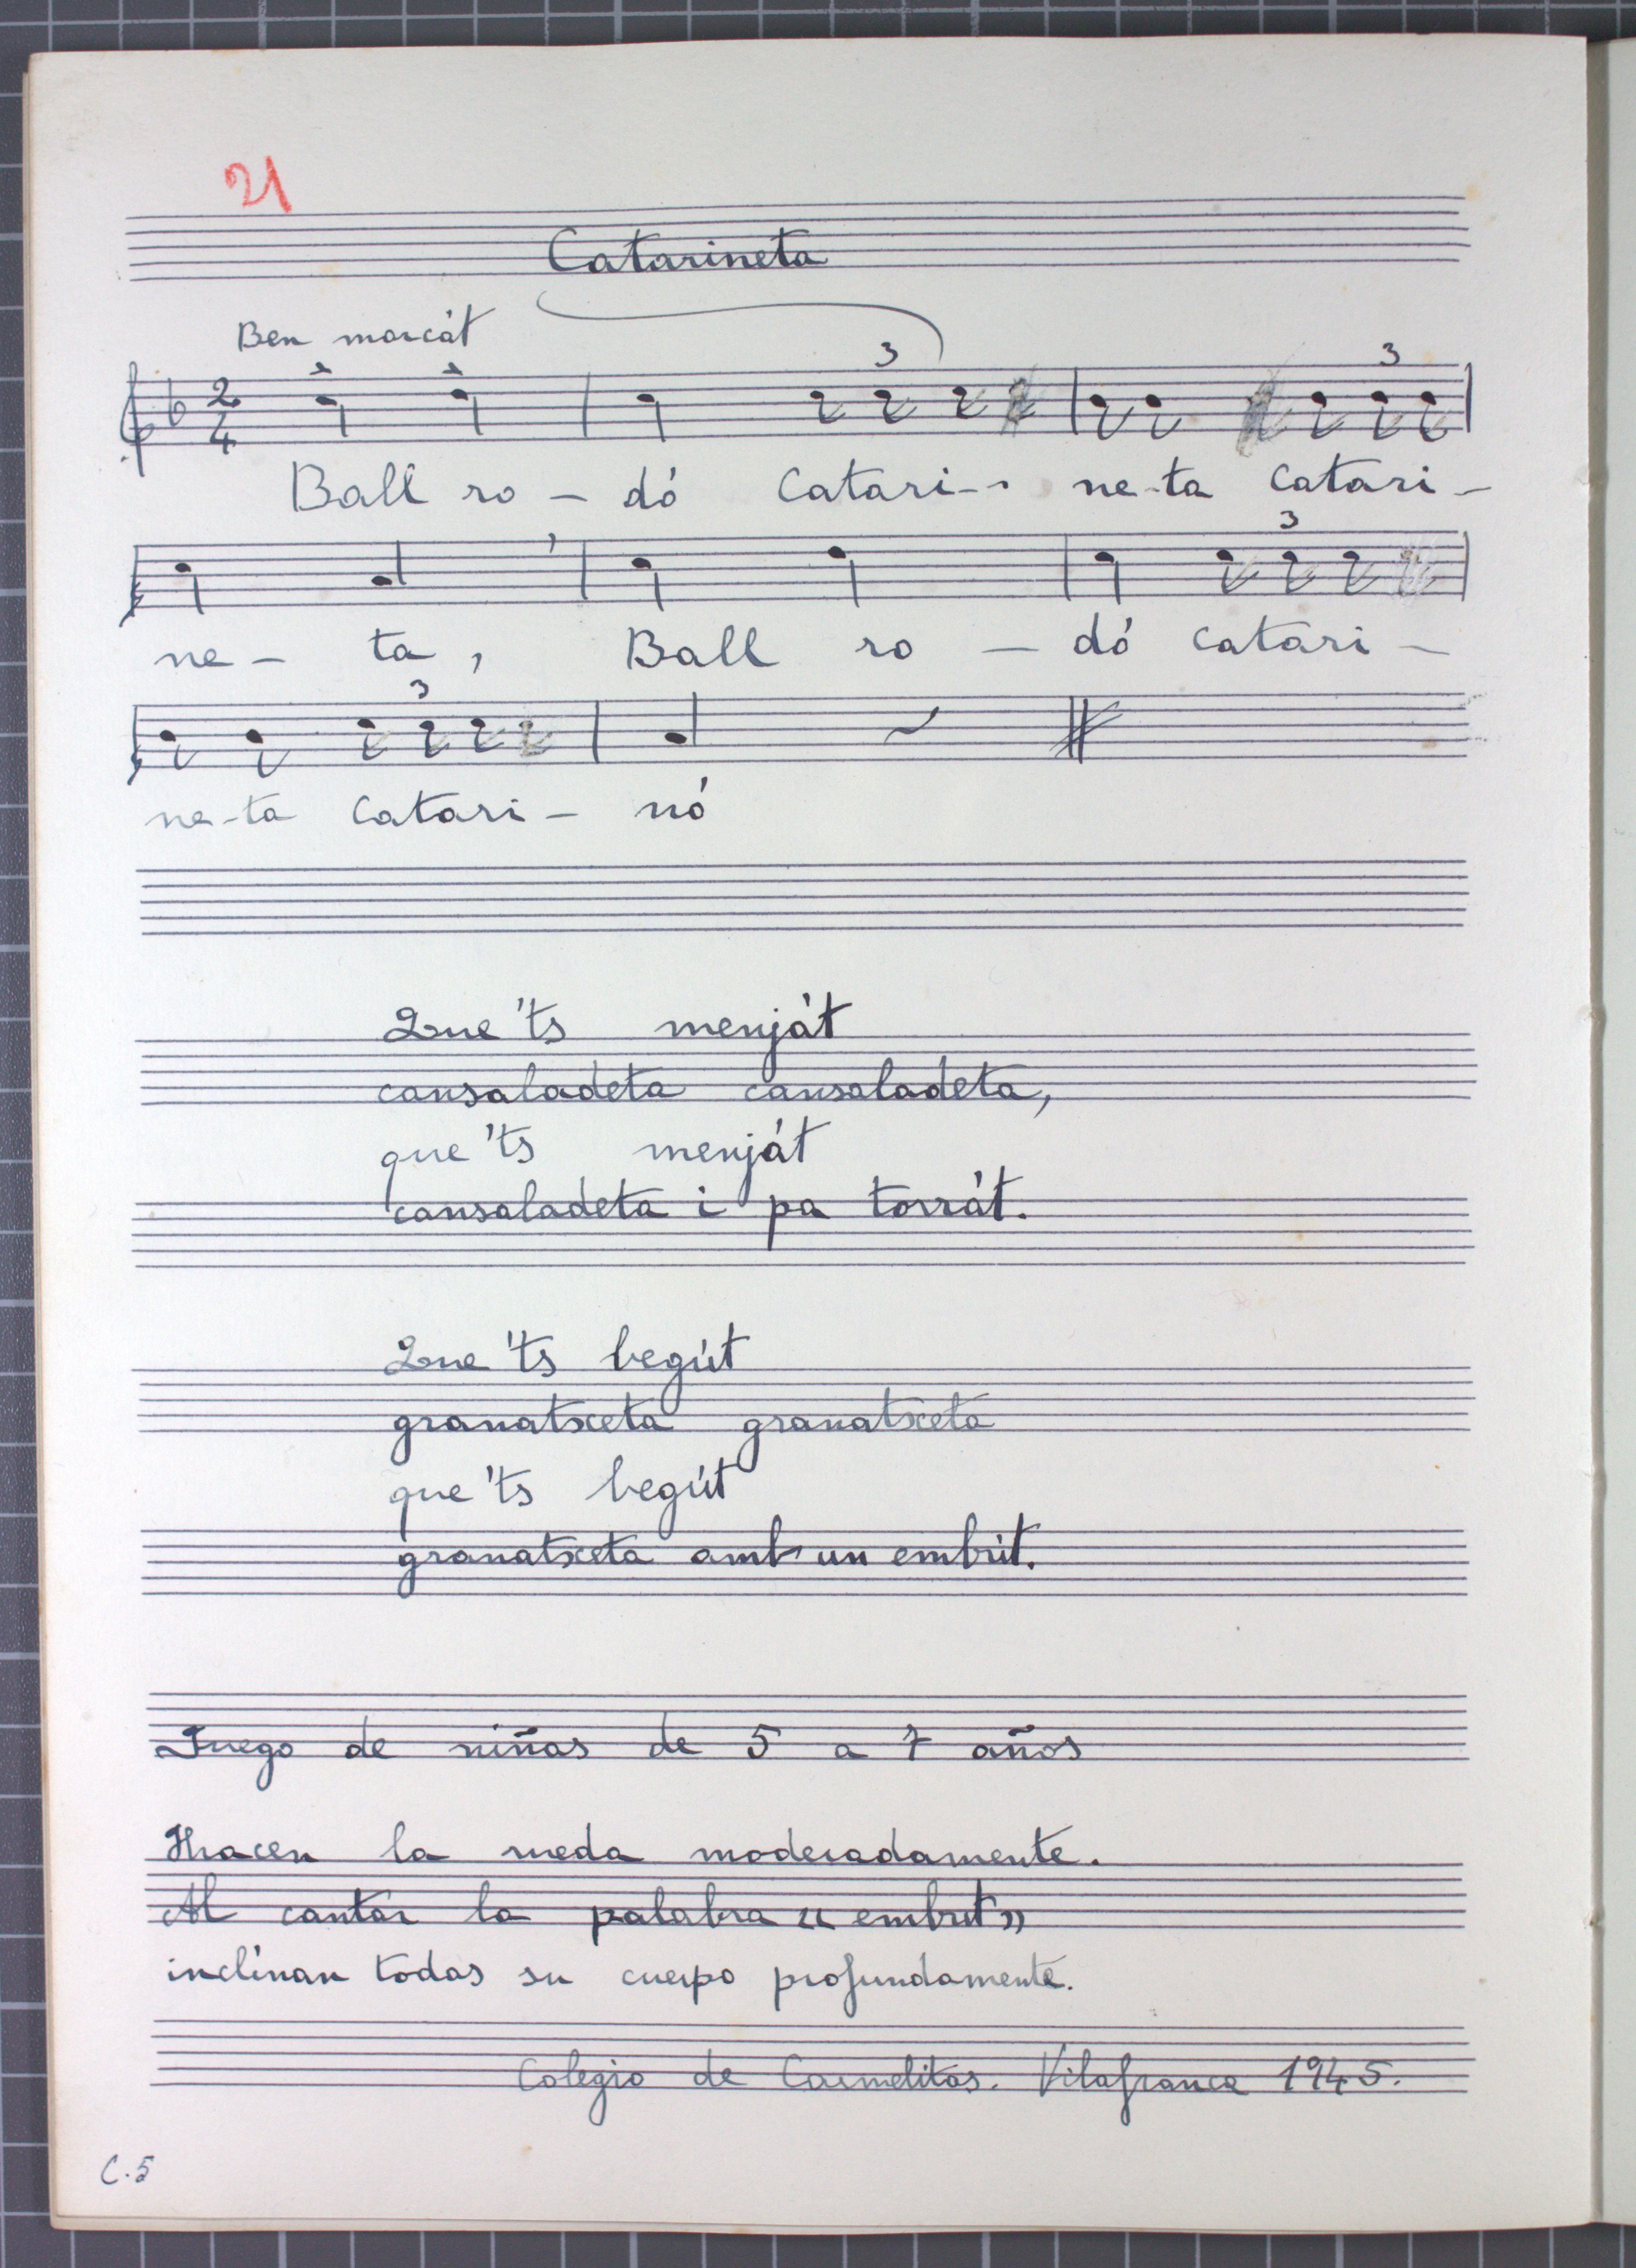 21
Catarineta
Ben marcát
2
4
3
3
Ball ro - dó Catari - ne-ta Catari -
3
ne - ta, Ball ro - dó Catari -
3
ne-ta Catari - nó
Que 'ts menját
cansaladeta cansaladeta,
que 'ts menját
cansaladeta i pa torrát.
Que 'ts begút
granatxeta granatxeta
que 'ts begút
granatxeta amb un embrit.
Juego de niñas de 5 a 7 años
Hacen la rueda moderadamente.
Al cantar la palabra «embrut»
inclinan todas su cuerpo profundamente.
Colegio de Carmelitas. Vilafranca 1945.
C.5